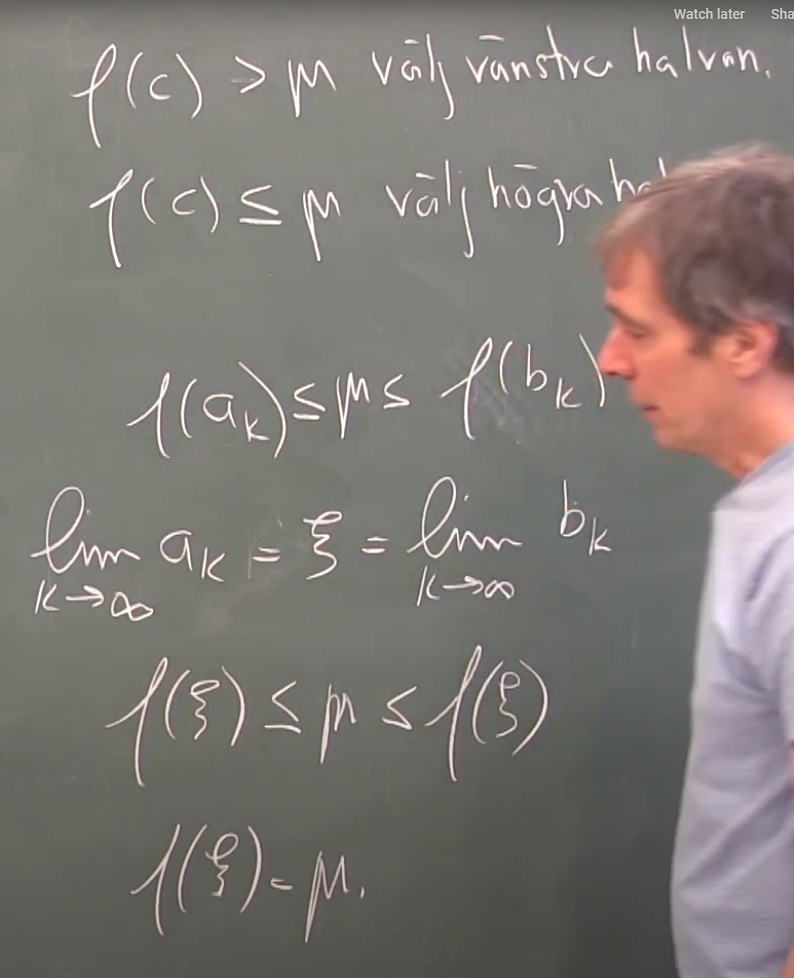 Watch later
f(c) > μ välj vänstra halvan.
f(c) ≤ μ välj högra
f(a_k) ≤ μ ≤ f(b_k)
lim a_k = ξ = lim b_k
k→∞ k→∞
f(ξ) ≤ μ ≤ f(ξ)
f(ξ) = μ.